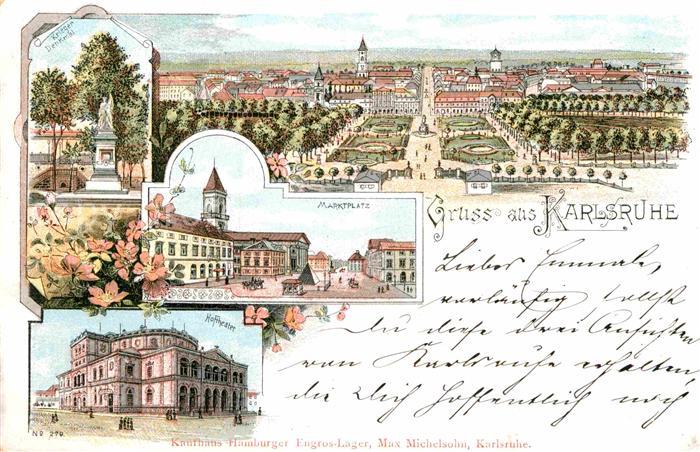 Krieger
Denkmal
MARKTPLATZ
Gruss aus KARLSRUHE
Liebes Emmale,
vorläufig sollst
Du diese drei Ansichten
von Karlsruhe erhalten,
die Dich hoffentlich noch
Hoftheater
No 270.
Kaufhaus Hamburger Engros-Lager, Max Michelsohn, Karlsruhe.